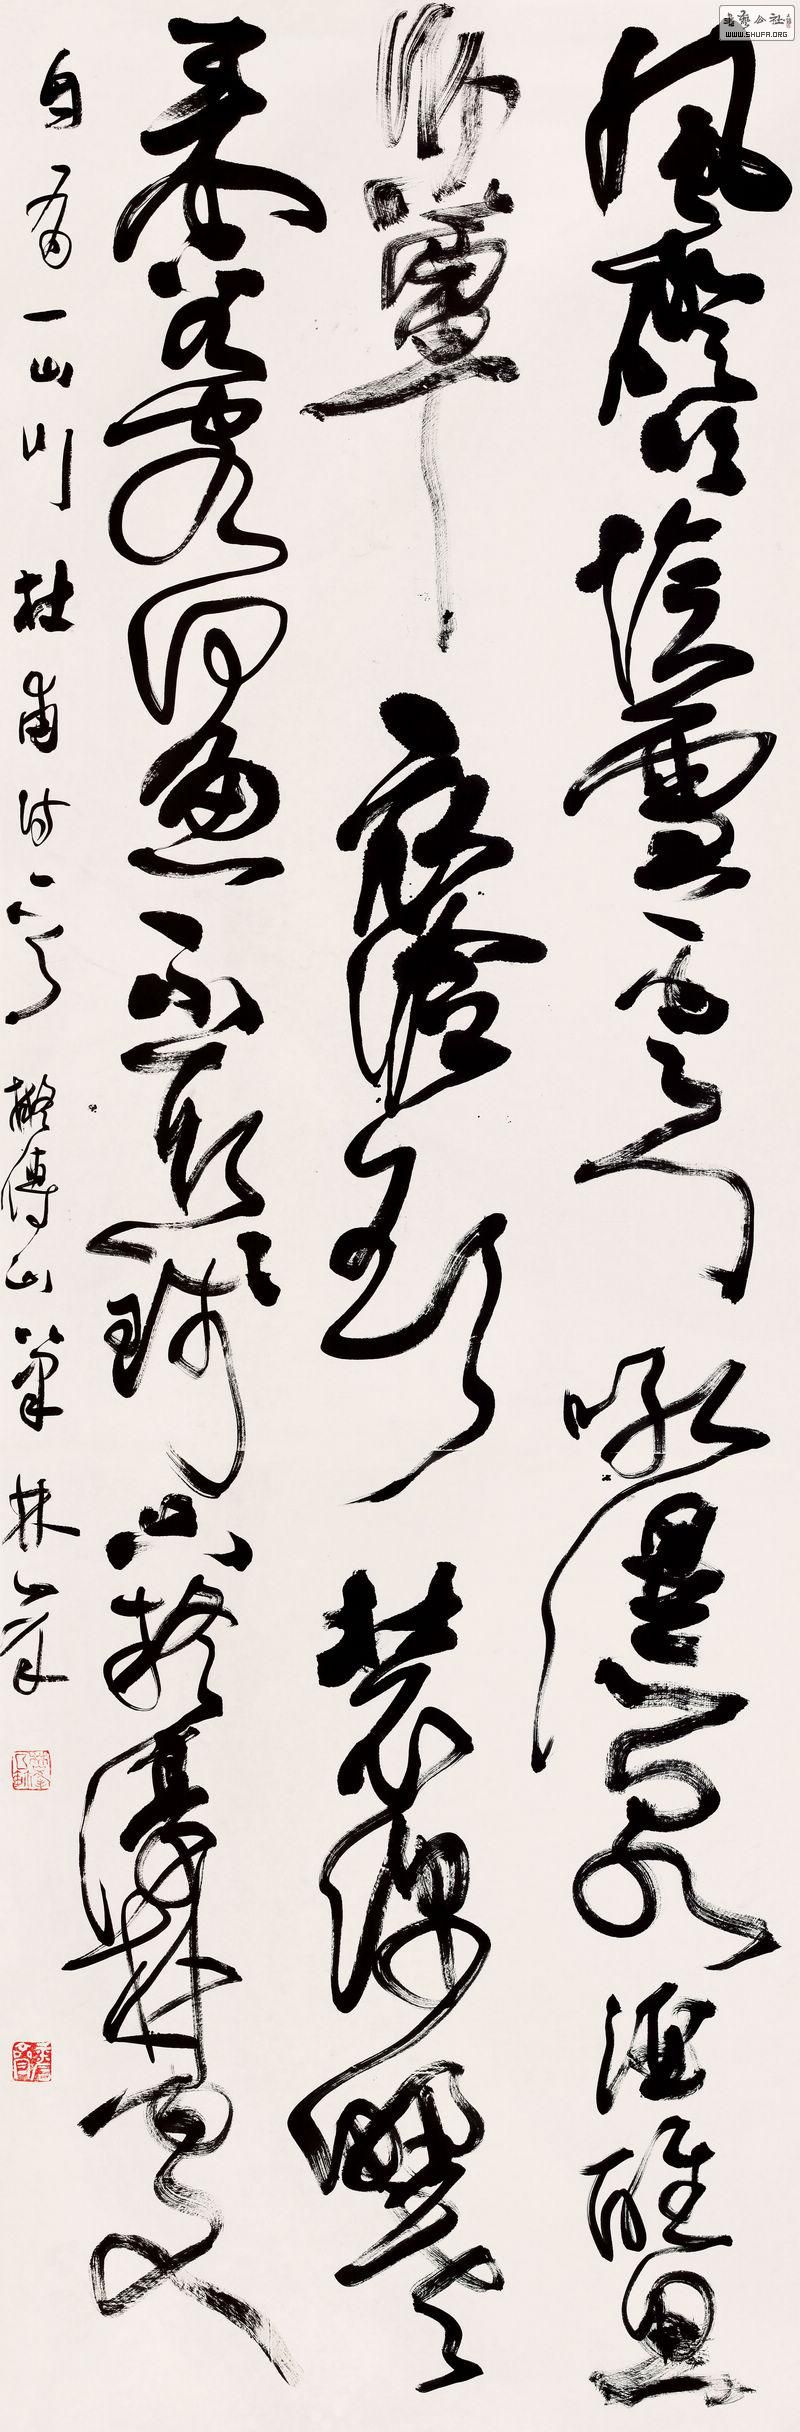 風磴吹陰雪雲門吼瀑泉酒醒思
臥簟衣冷欲裝綿野老
來看客河魚不取錢只疑淳樸處
自有一山川杜甫詩一首擬傅山筆林峯
书艺公社
WWW.SHUFA.ORG